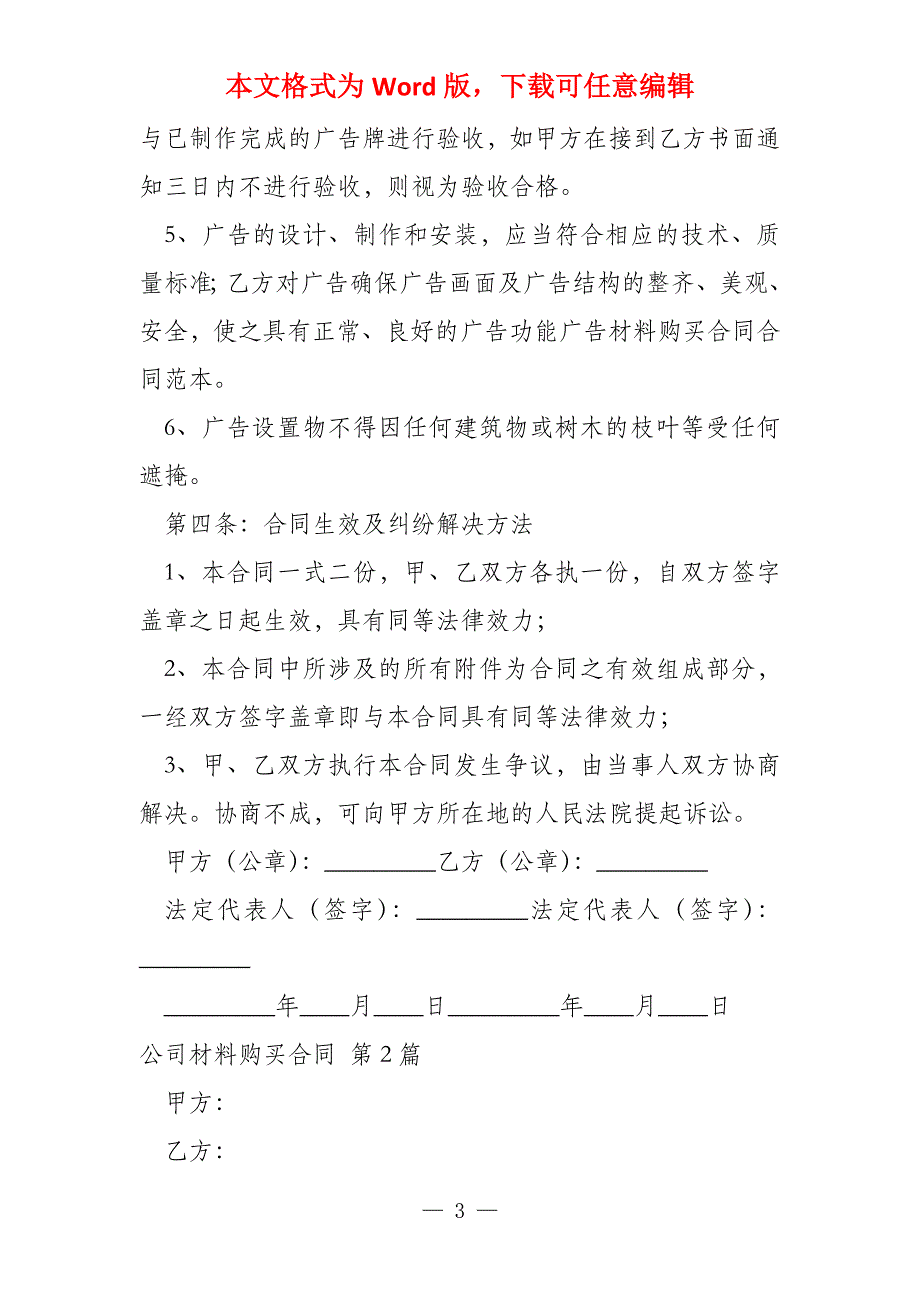 本文格式为 Word 版，下载可任意编辑
与已制作完成的广告牌进行验收，如甲方在接到乙方书面通
知三日内不进行验收，则视为验收合格。
5、广告的设计、制作和安装，应当符合相应的技术、质
量标准；乙方对广告确保广告画面及广告结构的整齐、美观、
安全，使之具有正常、良好的广告功能广告材料购买合同合
同范本。
6、广告设置物不得因任何建筑物或树木的枝叶等受任何
遮掩。
第四条：合同生效及纠纷解决方法
1、本合同一式二份，甲、乙双方各执一份，自双方签字
盖章之日起生效，具有同等法律效力；
2、本合同中所涉及的所有附件为合同之有效组成部分，
一经双方签字盖章即与本合同具有同等法律效力；
3、甲、乙双方执行本合同发生争议，由当事人双方协商
解决。协商不成，可向甲方所在地的人民法院提起诉讼。
甲方（公章）：_________乙方（公章）：_________
法定代表人（签字）：_________法定代表人（签字）：
_________
_________年____月____日_________年____月____日
公司材料购买合同 第 2 篇
甲方：
乙方：
— 3 —